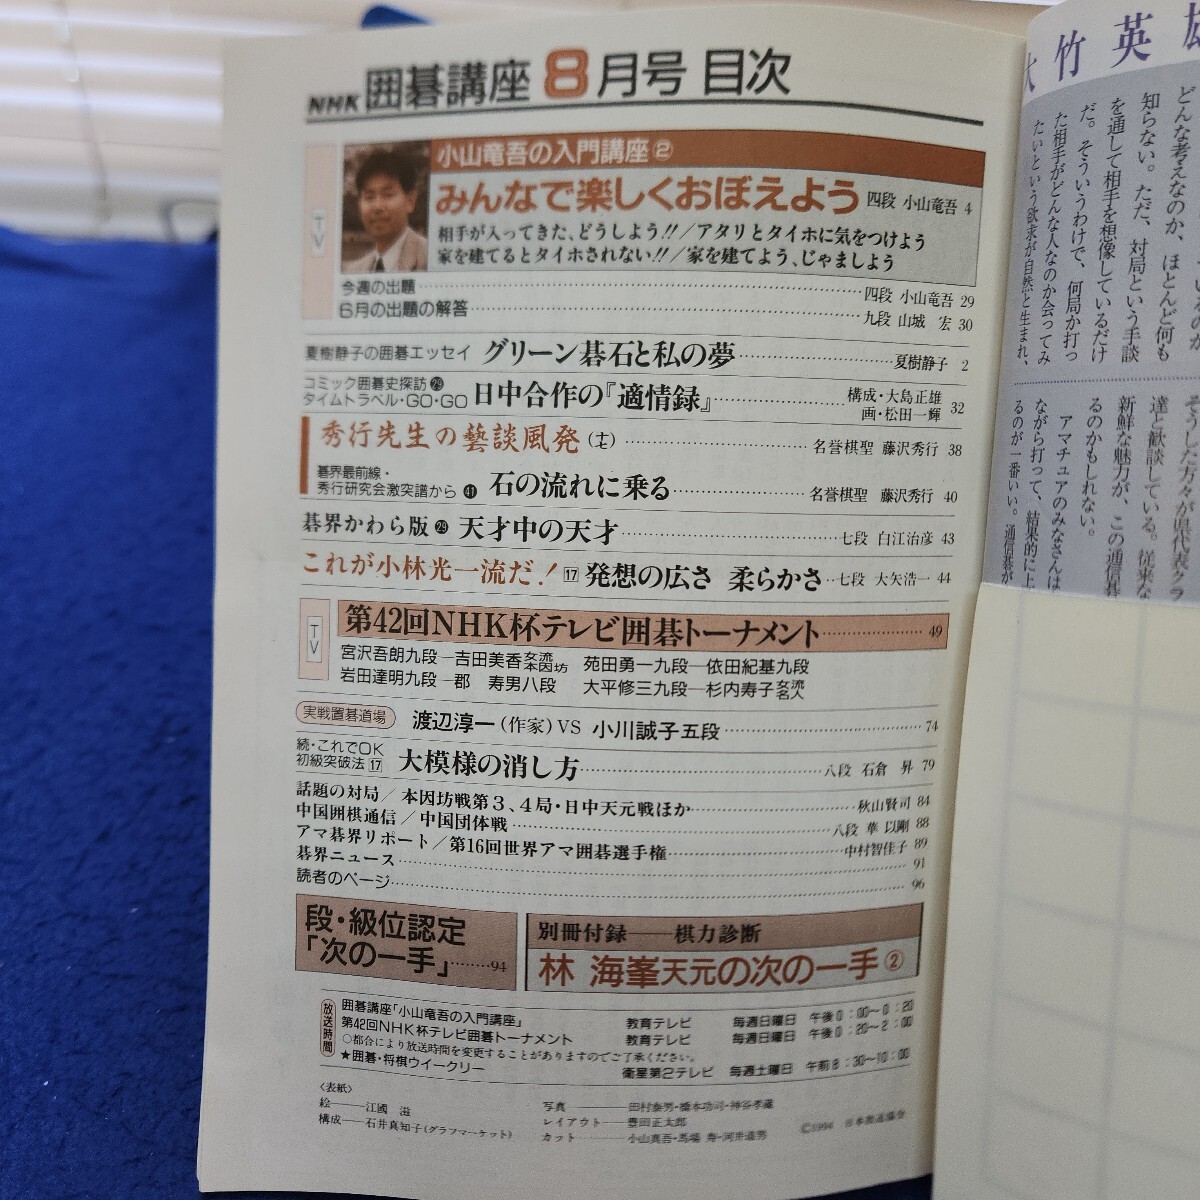 NHK 囲碁講座 8月号 目次
TV
小山竜吾の入門講座②
みんなで楽しくおぼえよう 四段 小山竜吾 4
相手が入ってきた、どうしよう!!/アタリとタイホに気をつけよう
家を建てるとタイホされない!!/家を建てよう、じゃましよう
今週の出題 四段 小山竜吾 29
6月の出題の解答 九段 山城 宏 30
夏樹静子の囲碁エッセイ グリーン碁石と私の夢 夏樹静子 2
コミック囲碁史探訪㉙
タイムトラベル・GO・GO 日中合作の『適情録』 構成・大島正雄 画・松田一輝 32
秀行先生の藝談風発(七) 名誉棋聖 藤沢秀行 38
碁界最前線・
秀行研究会激突譜から㊶ 石の流れに乗る 名誉棋聖 藤沢秀行 40
碁界かわら版㉙ 天才中の天才 七段 白江治彦 43
これが小林光一流だ! 17 発想の広さ 柔らかさ 七段 大矢浩一 44
TV
第42回NHK杯テレビ囲碁トーナメント 49
宮沢吾朗九段―吉田美香女流本因坊 苑田勇一九段―依田紀基九段
岩田達明九段―郡 寿男八段 大平修三九段―杉内寿子女流名人
実戦置碁道場 渡辺淳一(作家)VS 小川誠子五段 74
続・これでOK
初級突破法17 大模様の消し方 八段 石倉 昇 79
話題の対局/本因坊戦第3、4局・日中天元戦ほか 秋山賢司 84
中国囲棋通信/中国団体戦 八段 華 以剛 88
アマ碁界リポート/第16回世界アマ囲碁選手権 中村智佳子 89
碁界ニュース 91
読者のページ 96
段・級位認定
「次の一手」 94
別冊付録――棋力診断
林 海峯天元の次の一手②
放送時間
囲碁講座「小山竜吾の入門講座」 教育テレビ 毎週日曜日 午後0:00〜0:20
第42回NHK杯テレビ囲碁トーナメント 教育テレビ 毎週日曜日 午後0:20〜2:00
○都合により放送時間を変更することがありますのでご了承ください。
★囲碁・将棋ウイークリー 衛星第2テレビ 毎週土曜日 午前8:30〜10:00
〈表紙〉
絵――江國 滋
構成――石井真知子(グラフマーケット)
写真――田村泰男・橋本功司・神谷孝蔵
レイアウト――豊田正太郎
カット――小山真吾・馬場 寿・河井道男
©1994 日本放送協会
大竹英雄
どんな考えなのか、ほとんど何も
知らない。ただ、対局という手談
を通して相手を想像しているだけ
だ。そういうわけで、何局か打っ
た相手がどんな人なのか会ってみ
たいという欲求が自然と生まれ、
そうした方々が県代表クラ
達と歓談している。従来な
新鮮な魅力が、この通信碁
るのかもしれない。
アマチュアのみなさんは
ながら打って、結果的に上
るのが一番いい。通信碁が